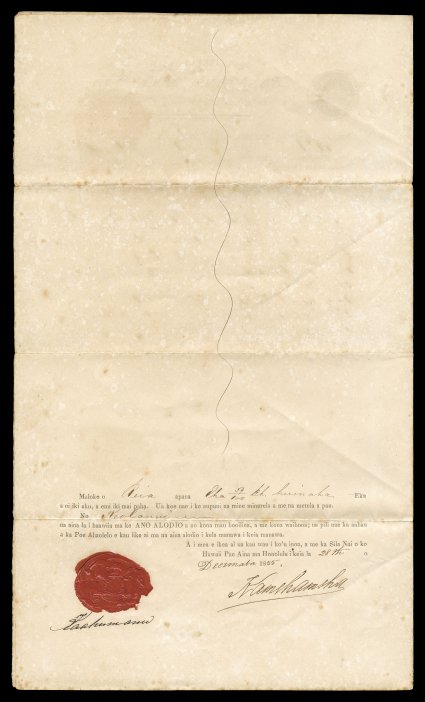 Maloko o apana Eka
a oi iki aku, a emi iki mai paha. Ua koe nae i ke aupuni na mine minerela a me na metala a pau.
No
ua aina la i haawiia ma ke ANO ALODIO a no kona mau hooilina, a me kona waihona; ua pili nae ka auhau
a ka Poe Ahaolelo e kau like ai ma na aina alodio i kela manawa i keia manawa.
A i mea e ikea ai ua kau wau i ko'u inoa, a me ka Sila Nui o ko
Hawaii Pae Aina ma Honolulu i keia la 28th o
Decemaba 1855.
Kamehameha
Kaahumanu